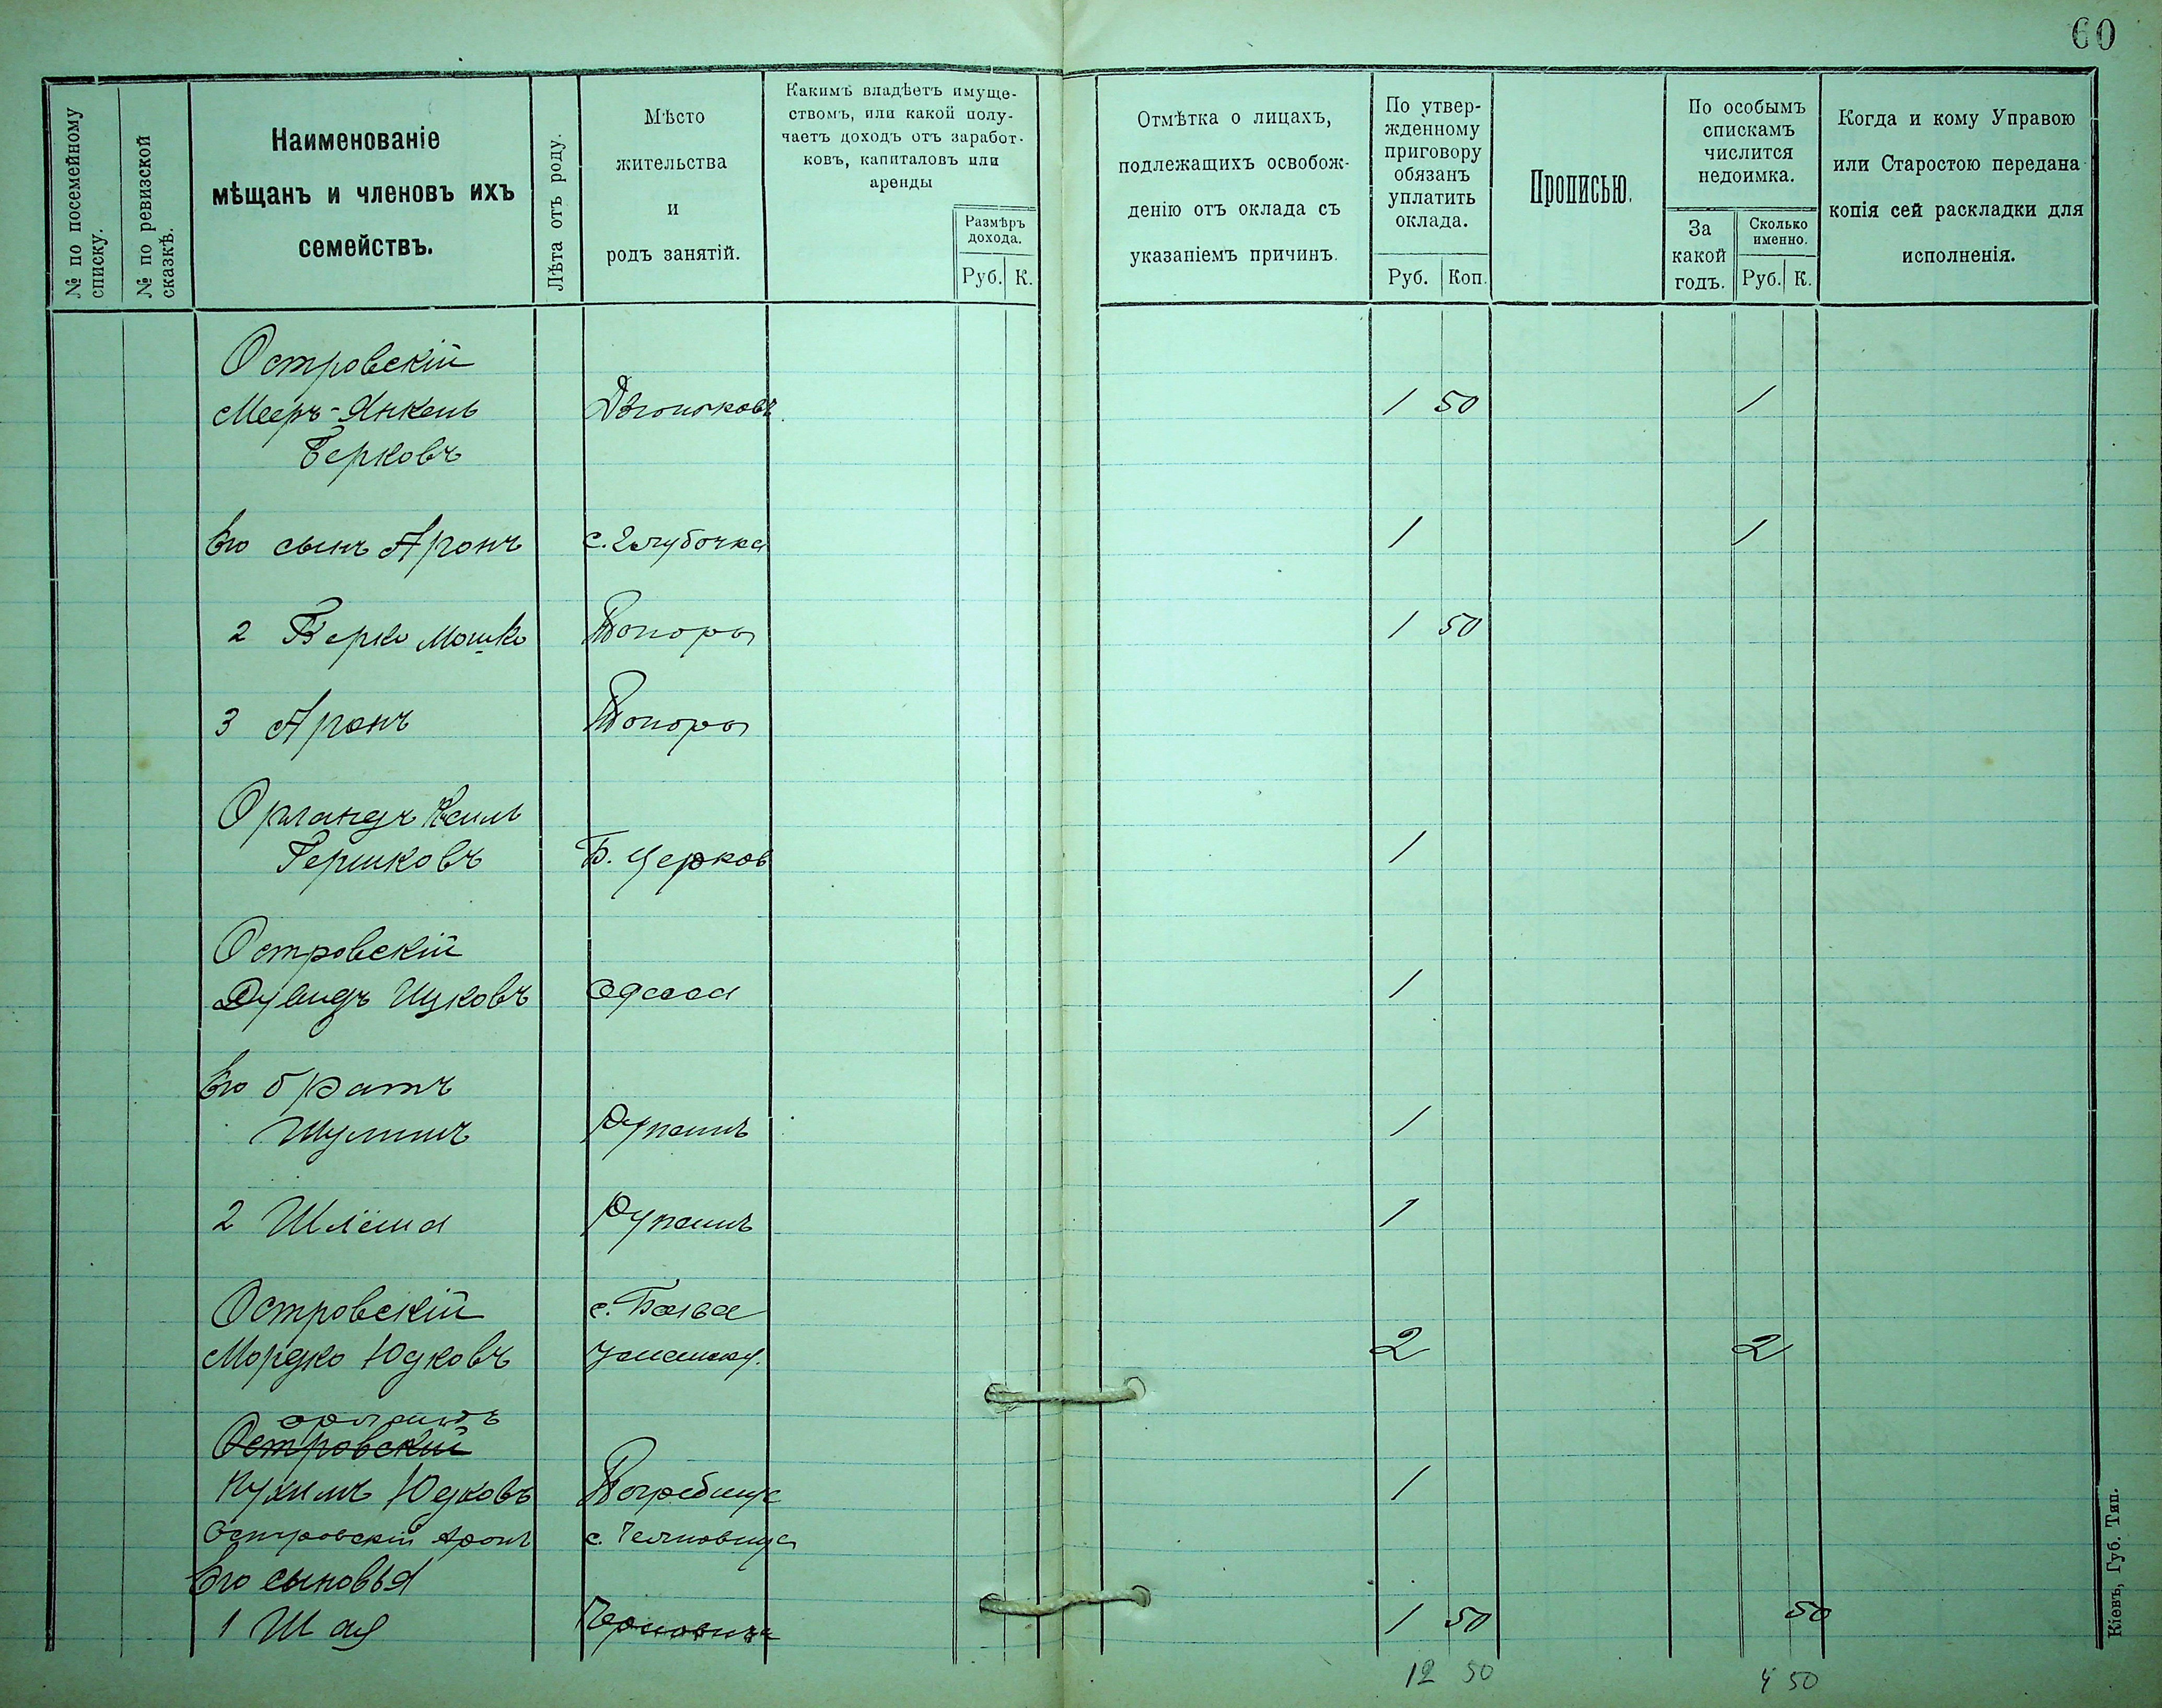 60
№ по посемейному списку.
№ по ревизской сказкѣ.
Наименованіе
мѣщанъ и членовъ ихъ
семействъ.
Лѣта отъ роду.
Мѣсто
жительства
и
родъ занятій.
Какимъ владѣетъ имуще-
ствомъ, или какой полу-
чаетъ доходъ отъ заработ-
ковъ, капиталовъ или
аренды
Размѣръ
дохода.
Руб. К.
Отмѣтка о лицахъ,
подлежащихъ освобож-
денію отъ оклада съ
указаніемъ причинъ.
По утвер-
жденному
приговору
обязанъ
уплатить
оклада.
Руб. Коп.
Прописью.
По особымъ
спискамъ
числится
недоимка.
За
какой
годъ.
Сколько
именно.
Руб. К.
Когда и кому Управою
или Старостою передана
копія сей раскладки для
исполненія.
Островскій
Мееръ-Янкель 1 50 1
Берковъ
Его сынъ Аронъ с. Глубочка 1 1
2 Берко Мошко 1 50
3 Аронъ
Орландъ
Гершковъ Б. Церков 1
Островскій
Дувидъ Ицковъ Одесса 1
Его братъ
Шулимъ 1
2 Шлёма 1
Островскій с.
Мордко Юдковъ 2 2
Островскій
Нухимъ Юдковъ Погребище 1
Островскій Аронъ с.
Его сыновья
1 Шая 1 50 50
12 50 4 50
Кіевъ, Губ. Тип.